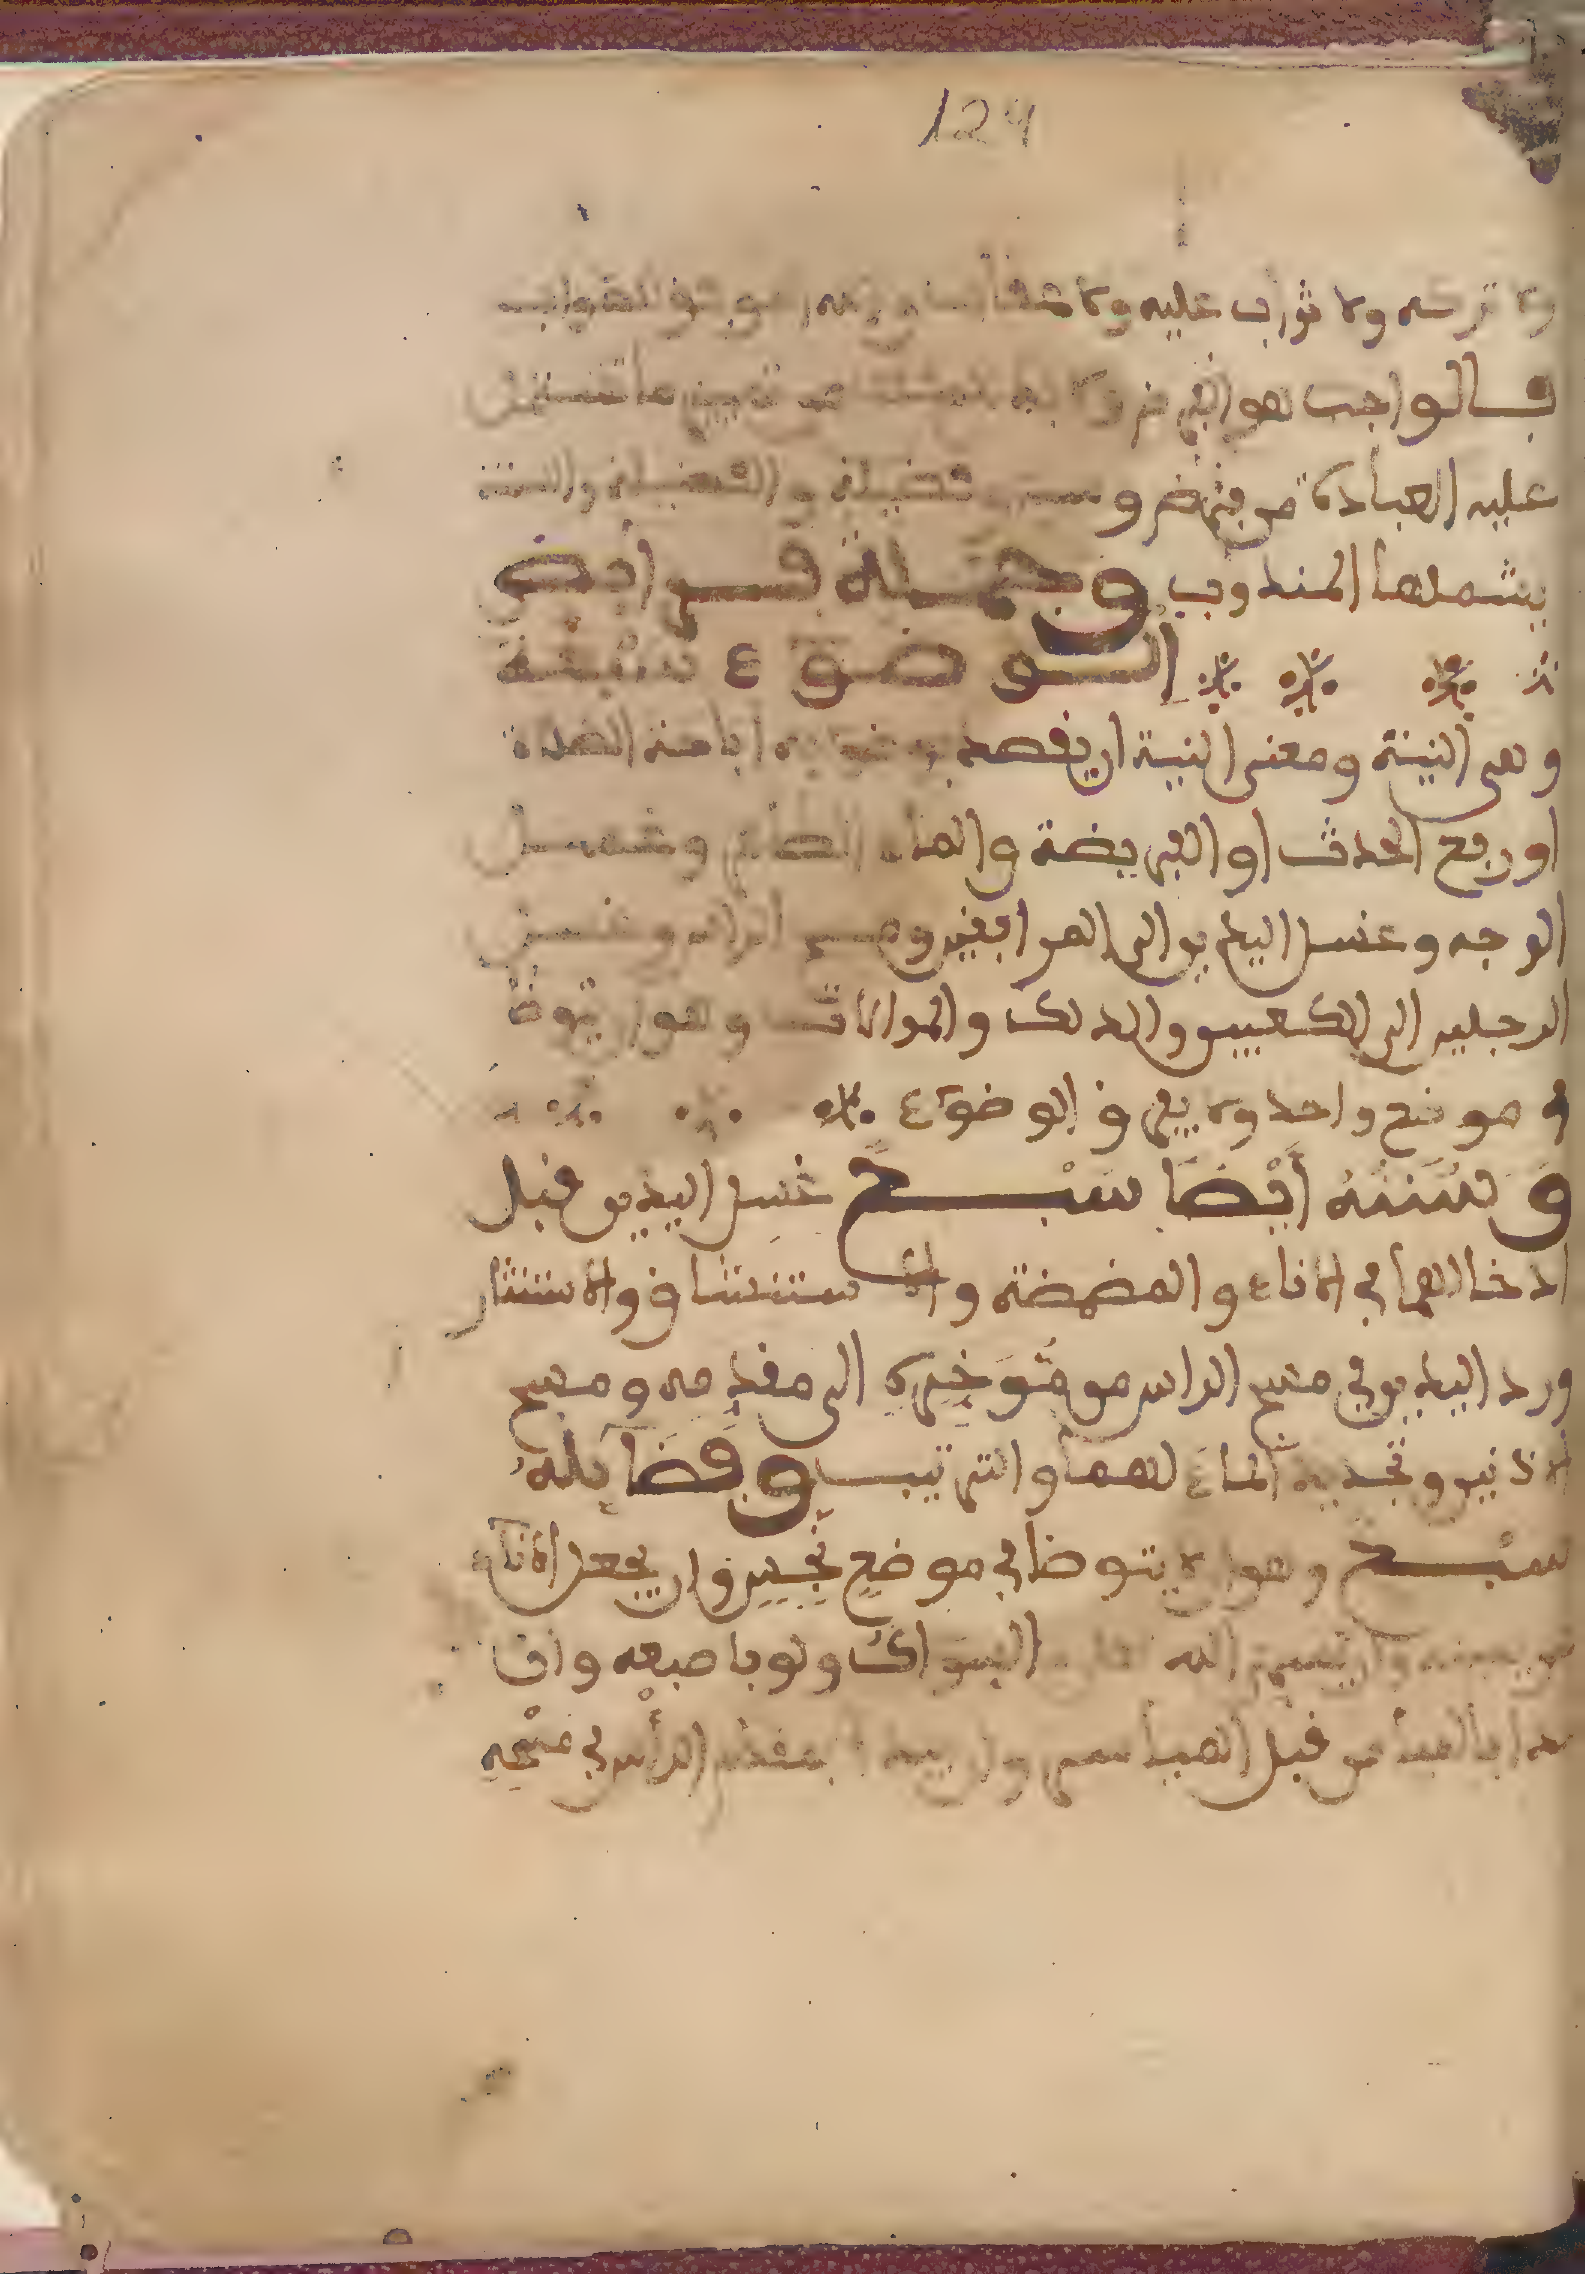 129
ولا تركه ولا ثواب عليه ولا عقاب
فالواجب هو الفرض
عليه العبادة من فرض وسنن فضيلة والفضيلة والسنة
يشملها المندوب وجملة فرايض
الوضوء سبعة
وهي النية ومعنى النية ان يقصد اباحة الصلاة
او رفع الحدث او الفريضة والماء الطاهر وغسل
الوجه وغسل اليدين الى المرافقين ومسح الراس وغسل
الرجلين الى الكعبين والدلك والموالات وهو ان يتوضأ
في موضع واحد ولا يفرق الوضوء
وَسُنَنُهُ أَيْضَا سَبْعٌ غسل اليدين قبل
ادخالهما في الاناء والمضمضة والاستنشاق والاستنثار
ورد اليدين في مسح الراس من مُوَخِّرِهِ الى مقدمه ومسح
الاذنين وتجديد الماء لهما والترتيب وفَضَايِلُهُ
سبع وهو ان لا يتوضا في موضع نجس وان يجعل الاناء
عن يمينه وان يسمي الله والسواك ولو باصبعه وان
يبدا بالميامن قبل المياسر وان يبدا بمقدم الرأس في مسحه